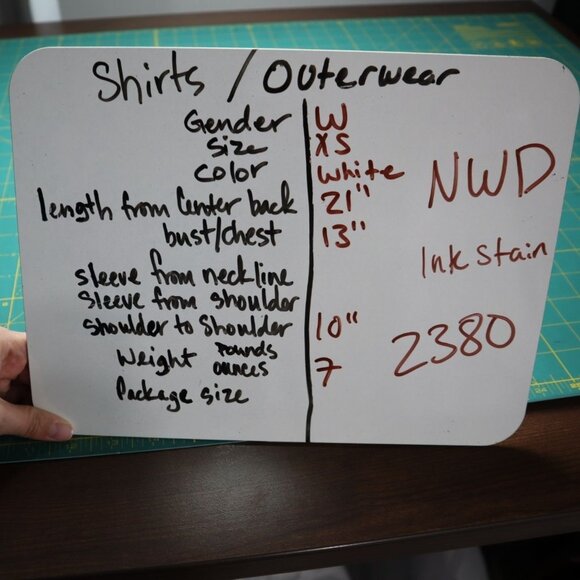 Shirts / Outerwear
Gender W
size XS
color white
NWD
length from Center back 21"
bust/chest 13"
Ink Stain
sleeve from neckline
sleeve from shoulder
shoulder to shoulder 10"
2380
Weight pounds
ounces 7
Package size